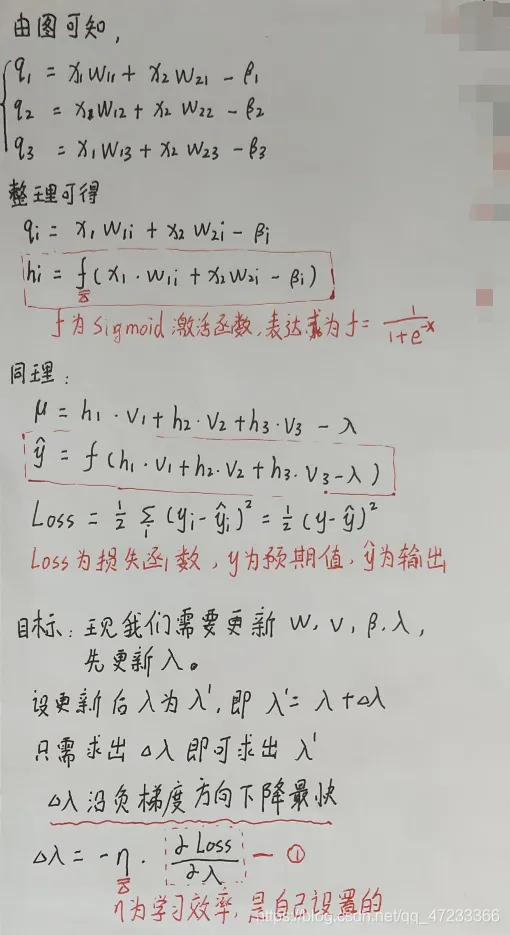 由图可知,
q₁ = x₁w₁₁ + x₂w₂₁ - β₁
q₂ = x₁w₁₂ + x₂w₂₂ - β₂
q₃ = x₁w₁₃ + x₂w₂₃ - β₃
整理可得
qᵢ = x₁w₁ᵢ + x₂w₂ᵢ - βᵢ
hᵢ = f(x₁·w₁ᵢ + x₂w₂ᵢ - βᵢ)
f为Sigmoid激活函数,表达式为f = 1/(1+e^-x)
同理:
μ = h₁·v₁ + h₂·v₂ + h₃·v₃ - λ
ŷ = f(h₁·v₁ + h₂·v₂ + h₃·v₃ - λ)
Loss = ½ Σᵢ (yᵢ - ŷᵢ)² = ½ (y - ŷ)²
Loss为损失函数,y为预期值,ŷ为输出
目标:现我们需要更新 w, v, β, λ,
先更新λ。
设更新后λ为λ',即 λ' = λ + △λ
只需求出 △λ 即可求出 λ'
△λ沿负梯度方向下降最快
△λ = -η · ∂Loss/∂λ — ①
η为学习效率,是自己设置的
https://blog.csdn.net/qq_47233366